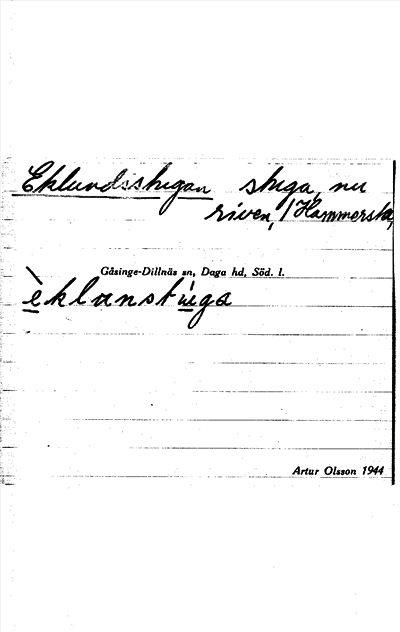 Eklundsstugan stuga, nu
riven, /Hammersta,
Gåsinge-Dillnäs sn, Daga hd, Söd. l.
èklanstùga
Artur Olsson 1944